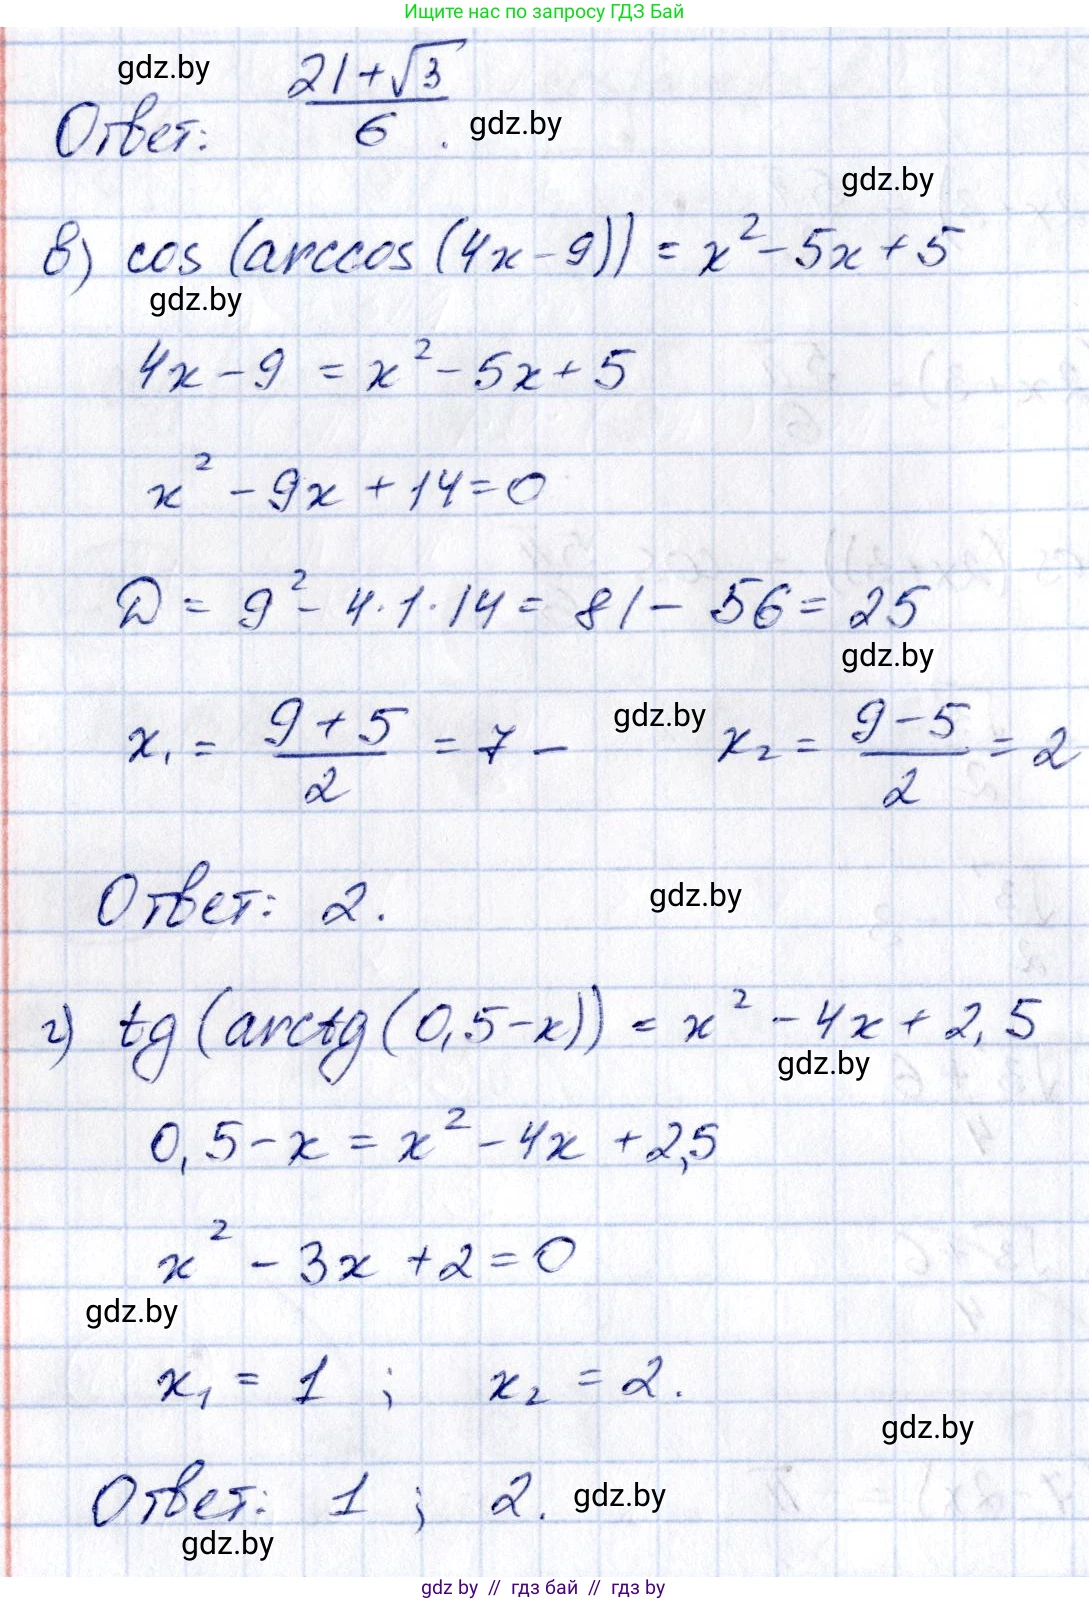 Ищите нас по запросу ГДЗ Бай
gdz.by
Ответ: (21+√3)/6.
gdz.by
gdz.by
в) cos (arccos (4x - 9)) = x² - 5x + 5
gdz.by
4x - 9 = x² - 5x + 5
x² - 9x + 14 = 0
D = 9² - 4·1·14 = 81 - 56 = 25
gdz.by
x₁ = (9+5)/2 = 7 - gdz.by x₂ = (9-5)/2 = 2
Ответ: 2. gdz.by
г) tg (arctg (0,5 - x)) = x² - 4x + 2,5
gdz.by
0,5 - x = x² - 4x + 2,5
x² - 3x + 2 = 0
gdz.by
x₁ = 1 ; x₂ = 2.
gdz.by
Ответ: 1 ; 2. gdz.by
gdz.by
gdz by // гдз бай // гдз by